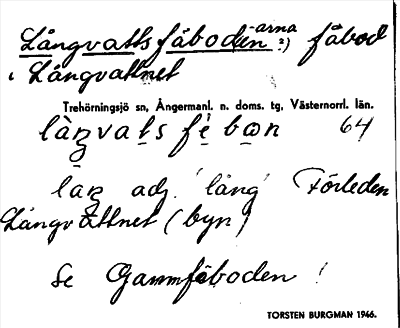 Långvattsfäboden -arna ?) fäbod
i Långvattnet
Trehörningsjö sn, Ångermanl. n. doms. tg, Västernorrl. län.
làŋvat̲s fè̲ bɷn 64
laŋ adj. 'lång' Förleden
Långvattnet (byn)
Se Gammfäboden !
TORSTEN BURGMAN 1946.